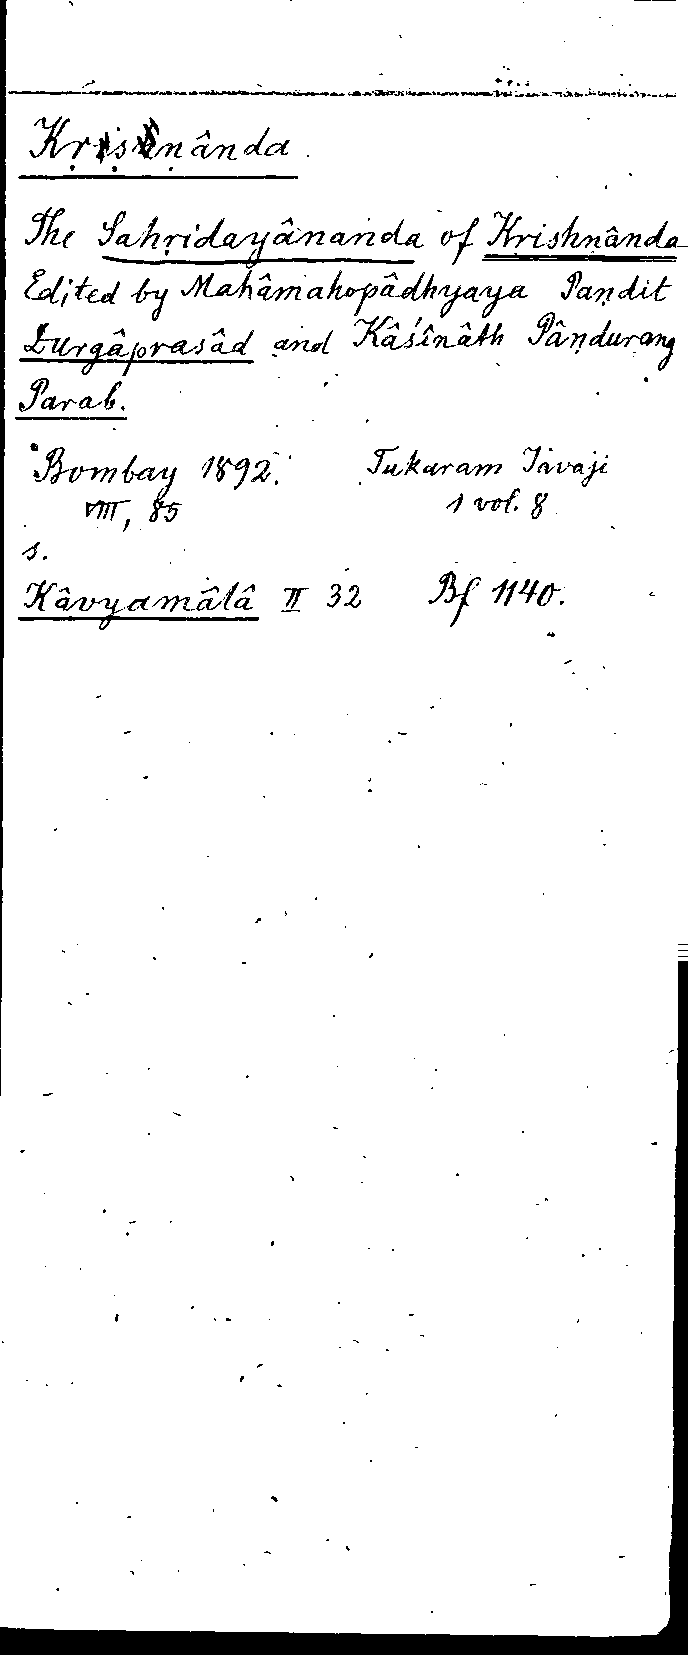 Kṛṣṇânda
The Sahṛidayânanda of Kṛishṇânda
Edited by Mahâmahopâdhyaya Paṇdit
Durgâprasâd and Kâśînâth Pâṇdurang
Parab.
Bombay 1892. Tukaram Javaji
VIII, 85 1 vol. 8
s.
Kâvyamâlâ II 32 Bf 1140.